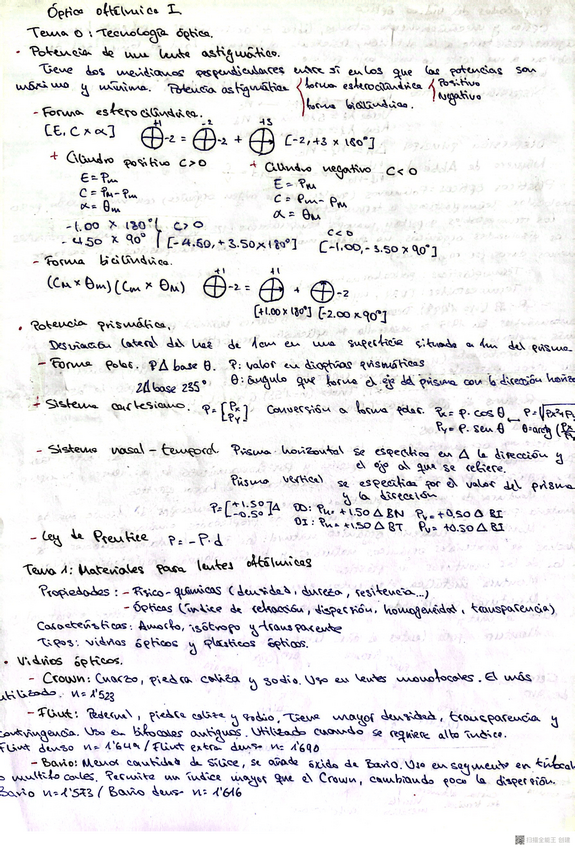 Óptica oftálmica I.
Tema 0: Tecnología óptica.
• Potencia de una lente astigmática.
Tiene dos meridianos perpendiculares entre sí en los que las potencias son
máximo y mínima. Potencia astigmática { forma esterocilíndrica { Positivo Negativo
forma bicilíndrica.
- Forma esterocilíndrica.
[E, C × α] +1 -2 = -2 -2 + +3 [-2, +3 × 180°]
+ Cilindro positivo C>0 + Cilindro negativo C<0
E = Pm E = PM
C = PM - Pm C = Pm - PM
α = θm α = θM
-1.00 × 180° } C>0 C<0
-4.50 × 90° } [-4.50, +3.50 × 180°] [-1.00, -3.50 × 90°]
- Forma bicilíndrica.
(Cm × θM) (CM × θm) +1 -2 = +1 + -2
[+1.00 × 180°] [-2.00 × 90°]
• Potencia prismática.
Desviación lateral del haz de 1cm en una superficie situada a 1m del prisma
- Forma polar. PΔ base θ. P: valor en dioptrías prismáticas
2Δ base 235° θ: ángulo que forma el eje del prisma con la dirección horiz
- Sistema cartesiano. P = [Px Py] Conversión a forma polar. Px = P · cos θ P = √Px²+P
Py = P · sen θ θ = arctg (
- Sistema nasal-temporal Prisma horizontal se especifica en Δ la dirección y
el ojo al que se refiere.
Prisma vertical se especifica por el valor del prisma
y la dirección
P = [+1.50 -0.50] Δ OD: PH = +1.50 Δ BN PV = +0.50 Δ BI
OI: PH = +1.50 Δ BT PV = +0.50 Δ BI
- Ley de Prentice P = -P · d
Tema 1: Materiales para lentes oftálmicas
Propiedades: - Físico-químicas (densidad, dureza, resitencia...)
- Ópticas (índice de refracción, dispersión, homogenidad, transparencia)
Características: Amorfo, isótropo y transparente
Tipos: vidrios ópticos y plásticos ópticos.
• Vidrios ópticos.
- Crown: Cuarzo, piedra caliza y sodio. Uso en lentes monofocales. El más
utilizado. n = 1'523
- Flint: Pedernal, piedra caliza y sodio. Tiene mayor densidad, transparencia y
contingencia. Uso en bifocales antiguos. Utilizado cuando se requiere alto índice.
Flint denso n = 1'649 / Flint extra denso n = 1'690
- Bario: Menor cantidad de sílice, se añade óxido de Bario. Uso en segmento en bifocal
o multifocales. Permite un índice mayor que el Crown, cambiando poco la dispersión.
Bario n = 1'573 / Bario denso n = 1'616
扫描全能王 创建